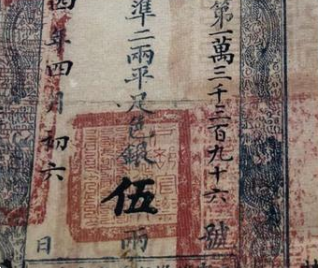 第一萬三千三百九十六號
準二兩平足色銀伍兩
四年四月初六日